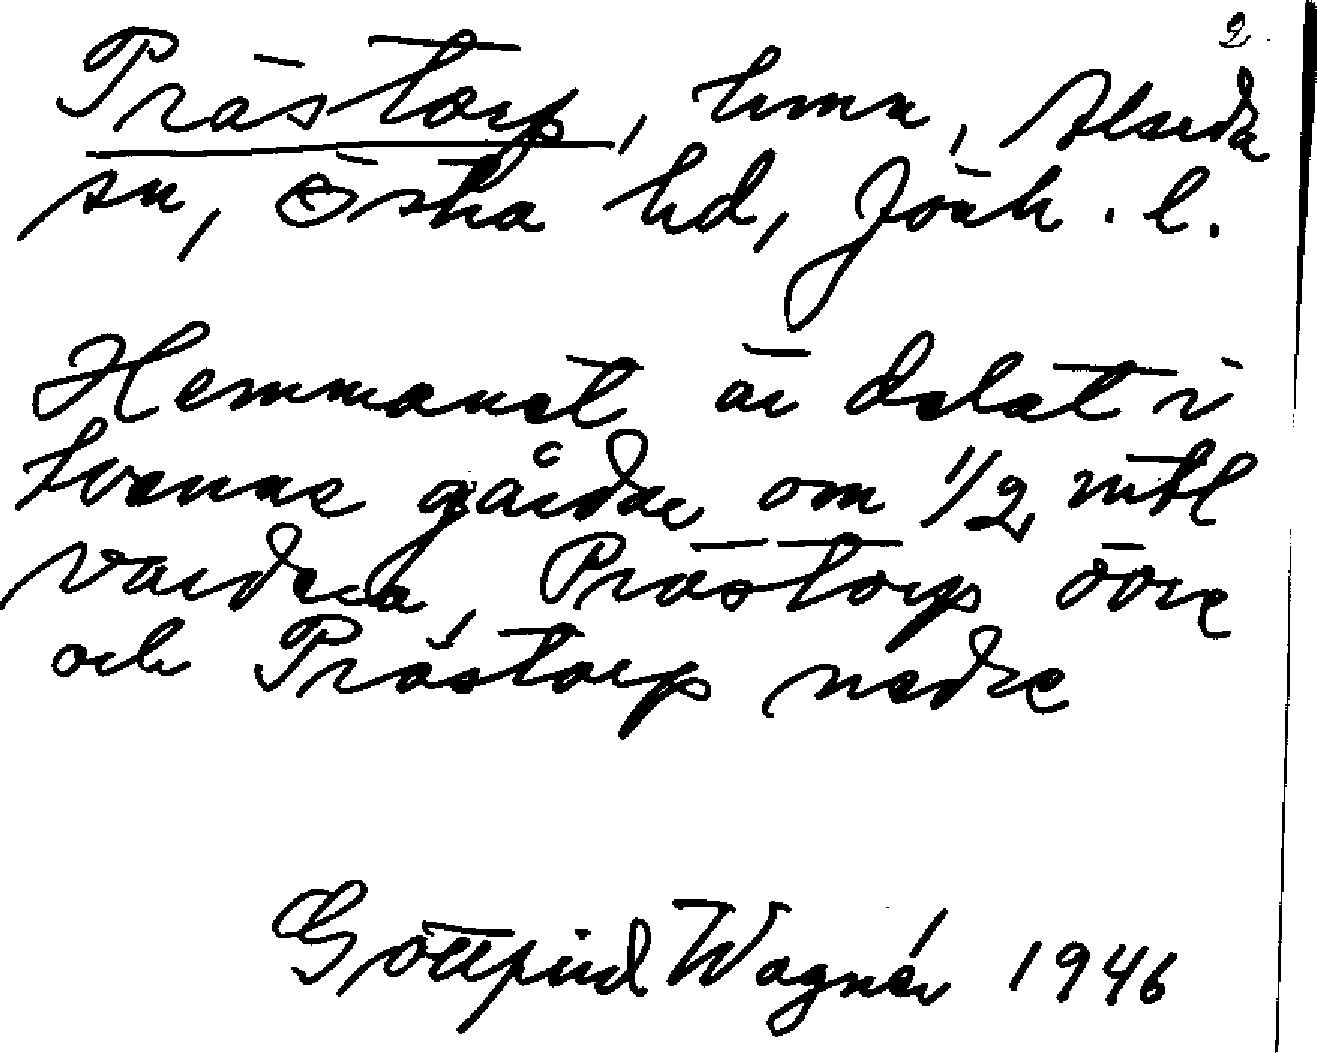 2.
Prästorp, hmn, Alseda
sn, Östra hd, Jönk. l.
Hemmanet är delat i
tvenne gårdar om 1/2 mtl
vardera, Prästorp övre
och Prästorp nedre
Gottfrid Wagnér 1946